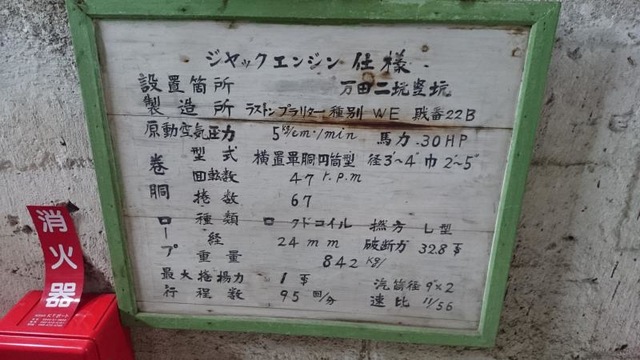 ジャックエンジン 仕様
設置箇所 万田二坑竪坑
製造所 ラストンプラリター 種別 WE 戦番22B
原動空気圧力 5kg/cm²/min 馬力 30HP
巻胴 型式 横置單胴円筒型 径3'~4" 巾2~5"
回転数 47 r.p.m
捲数 67
ロープ 種類 ロックドコイル 撚方 L型
経 24mm 破断力 32.8t
重量 842kg/
最大捲揚力 1t 汽筒径 9"×2
行程数 95回/分 速比 11/56
消火器